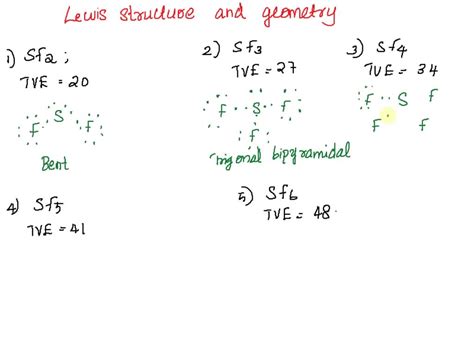 Lewis structure and geometry
1) Sf2 ;
TVE = 20
S
F F
Bent
2) Sf3
TVE = 27
F S F
F
Trigonal bipyramidal
3) Sf4
TVE = 34
F S F
F F
4) Sf5
TVE = 41
5) Sf6
TVE = 48